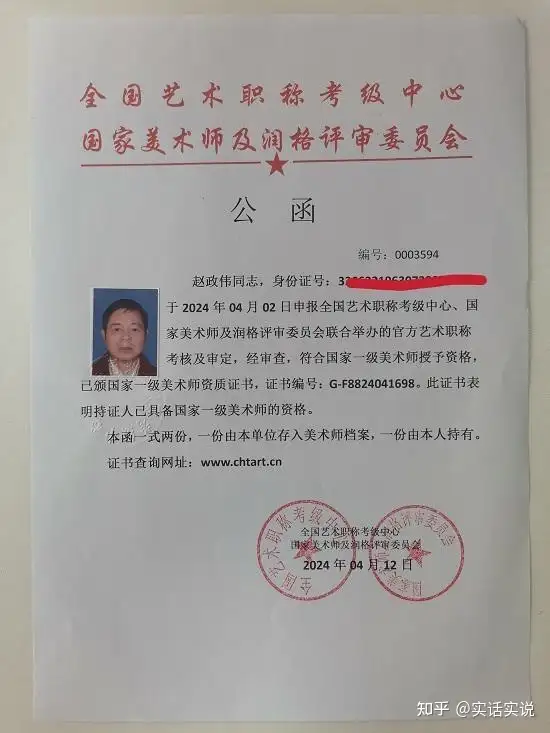 全国艺术职称考级中心
国家美术师及润格评审委员会
公 函
编号：0003594
赵政伟同志，身份证号：
于 2024 年 04 月 02 日申报全国艺术职称考级中心、国
家美术师及润格评审委员会联合举办的官方艺术职称
考核及审定，经审查，符合国家一级美术师授予资格，
已颁国家一级美术师资质证书，证书编号：G-F8824041698。此证书表
明持证人已具备国家一级美术师的资格。
本函一式两份，一份由本单位存入美术师档案，一份由本人持有。
证书查询网址：www.chtart.cn
全国艺术职称考级中心
国家美术师及润格评审委员会
2024 年 04 月 12 日
全国艺术职称考级中心
国家美术师及润格评审委员会
知乎 @实话实说